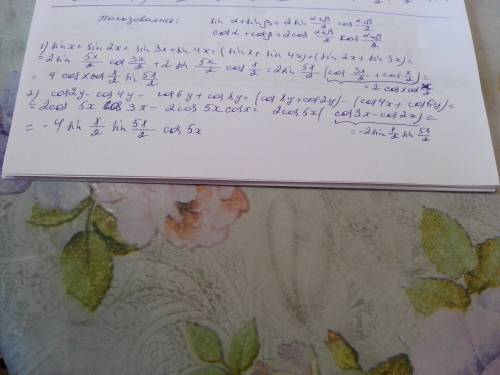 Пользовались: sin α + sin β = 2 sin (α+β)/2 cos (α-β)/2
cos α + cos β = 2 cos (α+β)/2 cos (α-β)/2
1) sin x + sin 2x + sin 3x + sin 4x = (sin x + sin 4x) + (sin 2x + sin 3x) =
= 2 sin 5x/2 cos 3x/2 + 2 sin 5x/2 cos x/2 = 2 sin 5x/2 (cos 3x/2 + cos x/2) =
= 2 cos x cos x/2
= 4 cos x cos x/2 sin 5x/2
2) cos 2y - cos 4y - cos 6y + cos 8y = (cos 8y + cos 2y) - (cos 4x + cos 6y) =
= 2 cos 5x cos 3x - 2 cos 5x cos x = 2 cos 5x (cos 3x - cos 2x) =
= -2 sin x/2 sin 5x/2
= -4 sin x/2 sin 5x/2 cos 5x